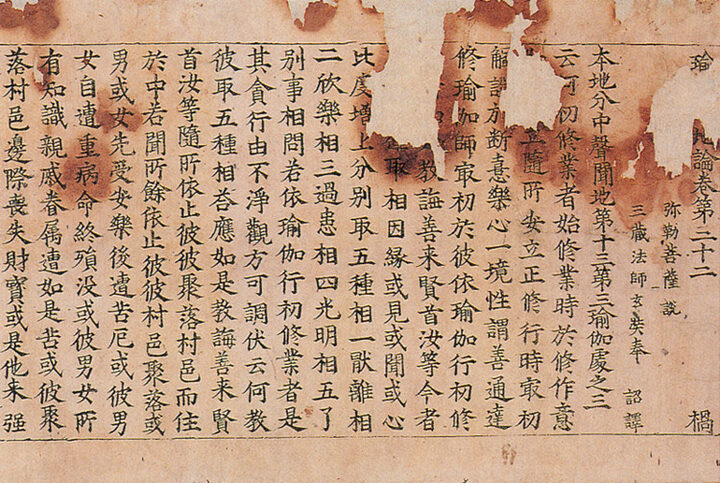 瑜 地論卷第三十二 楇
弥勒菩薩說
三藏法師玄奘奉 詔譯
本地分中聲聞地第十三第三瑜伽處之三
云何初修業者始修業時於修作意
立隨所安立正修行時㝡初
證於斷憙樂心一境性謂善通達
修瑜伽師㝡初於彼依瑜伽行初修
教誨善来賢首汝等今者
取相因緣或見或聞或心
比度增上分別取五種相一猒離相
二欣樂相三過患相四光明相五了
別事相問若依瑜伽行初修業者是
其貪行由不淨觀方可調伏云何教
彼取五種相荅應如是教誨善来賢
首汝等隨所依止彼彼聚落村邑而住
於中若聞所餘依止彼彼村邑聚落或
男或女先受安樂後遭苦厄或彼男
女自遭重病命終殞没或彼男女所
有知識親戚眷属遭如是苦或彼聚
落村邑邊際喪失財寶或是他来强